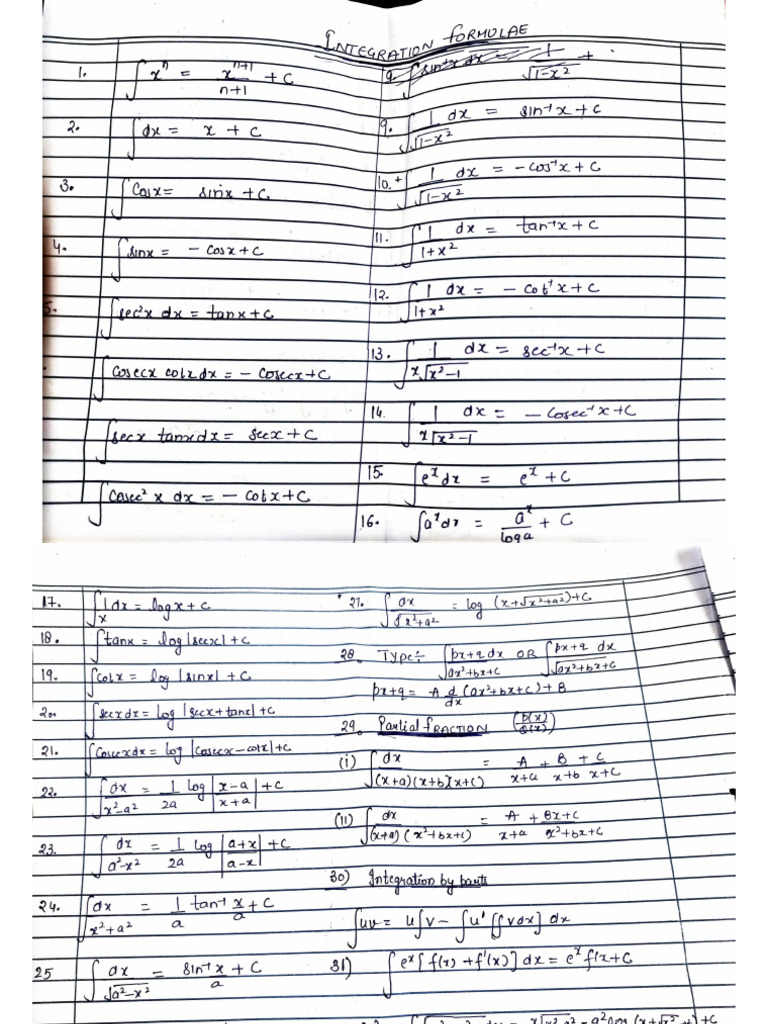 INTEGRATION FORMULAE
1. ∫xⁿ = xⁿ⁺¹/n+1 + C
2. ∫dx = x + C
3. ∫Cosx = sinx + C
4. ∫sinx = - Cosx + C
5. ∫sec²x dx = tanx + C
∫Cosecx cotx dx = - Cosecx + C
∫secx tanx dx = secx + C
∫Cosec²x dx = - Cotx + C
9. ∫sin⁻¹x dx = 1/√1-x² +
9. ∫1/√1-x² dx = sin⁻¹x + C
10. + ∫1/√1-x² dx = - cos⁻¹x + C
11. ∫1/1+x² dx = tan⁻¹x + C
12. ∫1/1+x² dx = - Cot⁻¹x + C
13. ∫1/x√x²-1 dx = sec⁻¹x + C
14. ∫1/x√x²-1 dx = - Cosec⁻¹x + C
15. ∫eˣdx = eˣ + C
16. ∫aˣdx = aˣ/loga + C
17. ∫1/x dx = logx + C
18. ∫tanx = log|secx| + C
19. ∫Cotx = log|sinx| + C
20. ∫secxdx = log|secx + tanx| + C
21. ∫Cosecxdx = log|Cosecx - cotx| + C
22. ∫dx/x²-a² = 1/2a log|x-a/x+a| + C
23. ∫dx/a²-x² = 1/2a log|a+x/a-x| + C
24. ∫dx/x²+a² = 1/a tan⁻¹ x/a + C
25 ∫dx/√a²-x² = sin⁻¹ x/a + C
27. ∫dx/√x²+a² = log (x+√x²+a²) + C
28. Type:- ∫px+q dx/ax²+bx+C OR ∫px+q dx/√ax²+bx+C
px+q = A d/dx (ax²+bx+C) + B
29. Partial FRACTION (P(x)/Q(x))
(i) ∫dx/(x+a)(x+b)(x+c) = A/x+a + B/x+b + C/x+C
(ii) ∫dx/(x+a)(x²+bx+C) = A/x+a + Bx+C/x²+bx+C
30) Integration by parts
∫uv = u∫v - ∫u'[∫vdx] dx
31) ∫eˣ[f(x) + f'(x)] dx = eˣ f(x + C